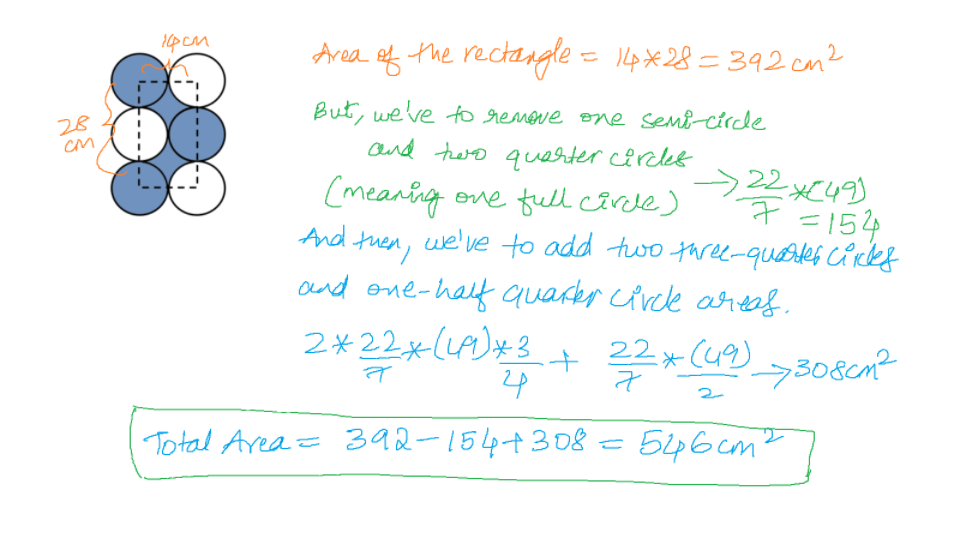 14cm
28
cm
Area of the rectangle = 14*28 = 392 cm²
But, we've to remove one semi-circle
and two quarter circles
(meaning one full circle) → 22/7 *(49)
= 154
And then, we've to add two three-quarter circles
and one-half quarter circle areas.
2 * 22/7 * (49) * 3/4 + 22/7 * (49)/2 → 308cm²
Total Area = 392 - 154 + 308 = 546 cm²